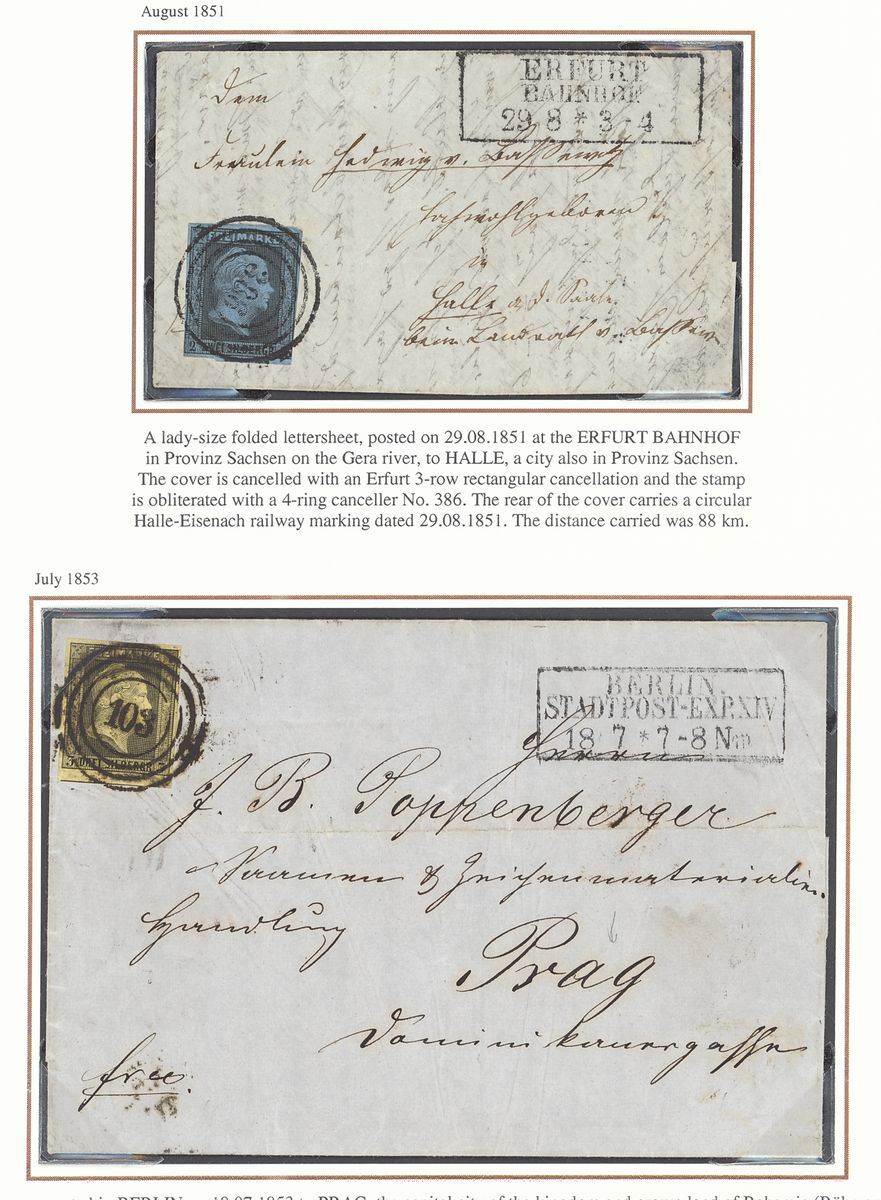 August 1851
ERFURT
BAHNHOF
29 8 * 3 - 4
Dem
Fräulein Hedwig v. Bassewitz
Hochwohlgeboren
in
Halle a. d. Saale
beim Landrath v. Bassew
FREIMARKE
386
2 ZWEI SILBERGR
A lady-size folded lettersheet, posted on 29.08.1851 at the ERFURT BAHNHOF
in Provinz Sachsen on the Gera river, to HALLE, a city also in Provinz Sachsen.
The cover is cancelled with an Erfurt 3-row rectangular cancellation and the stamp
is obliterated with a 4-ring canceller No. 386. The rear of the cover carries a circular
Halle-Eisenach railway marking dated 29.08.1851. The distance carried was 88 km.
July 1853
FREIMARKE
103
3 DREI SILBERGR 3
BERLIN.
STADTPOST-EXP.XIV
18 7 * 7-8 Nm
Herrn
J. B. Poppenberger
Saamen & Zeichenmaterialien
Handlung
Prag
Dominikanergasse
free.
BERLIN 18.07.1853 to PRAG, the capital city of the kingdom and crown land of Bohemia